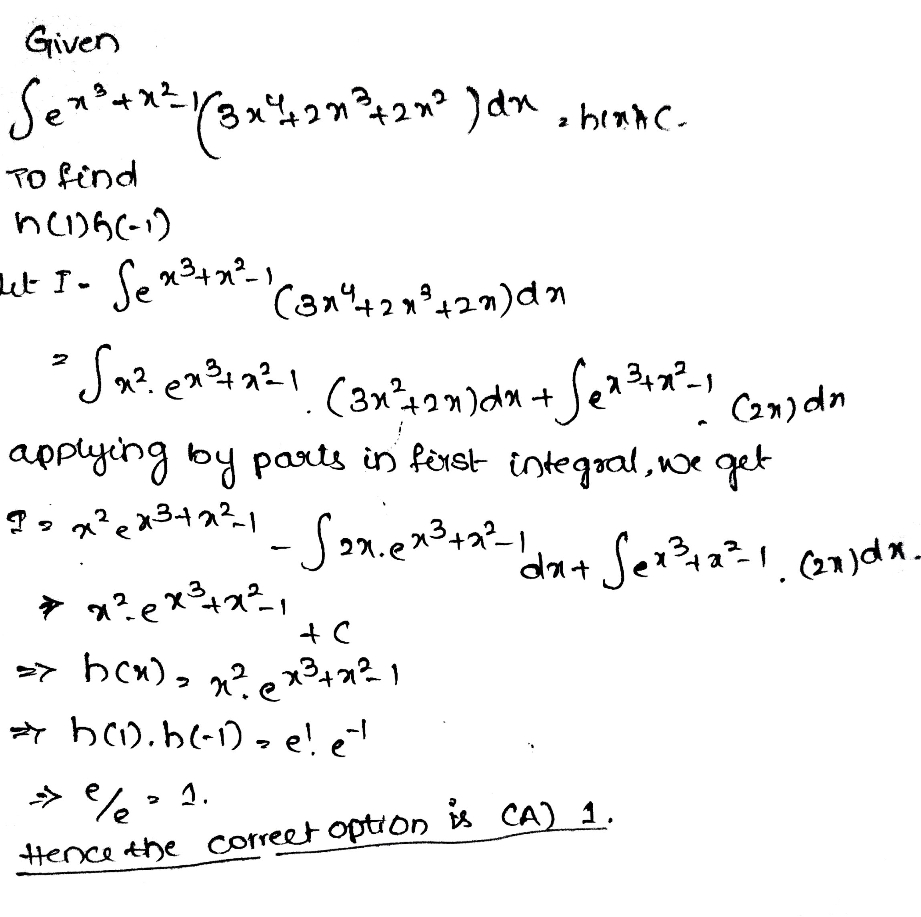 Given
∫e^{x^3+x^2-1}(3x^4+2x^3+2x^2)dx = h(x)+C.
To find
h(1)h(-1)
Let I = ∫e^{x^3+x^2-1}(3x^4+2x^3+2x)dx
= ∫x^2.e^{x^3+x^2-1}.(3x^2+2x)dx + ∫e^{x^3+x^2-1}.(2x)dx
applying by parts in first integral, we get
I = x^2e^{x^3+x^2-1} - ∫2x.e^{x^3+x^2-1}dx + ∫e^{x^3+x^2-1}.(2x)dx.
⇒ x^2.e^{x^3+x^2-1} + C
⇒ h(x) = x^2.e^{x^3+x^2-1}
⇒ h(1).h(-1) = e^1.e^{-1}
⇒ e/e = 1.
Hence the correct option is (A) 1.